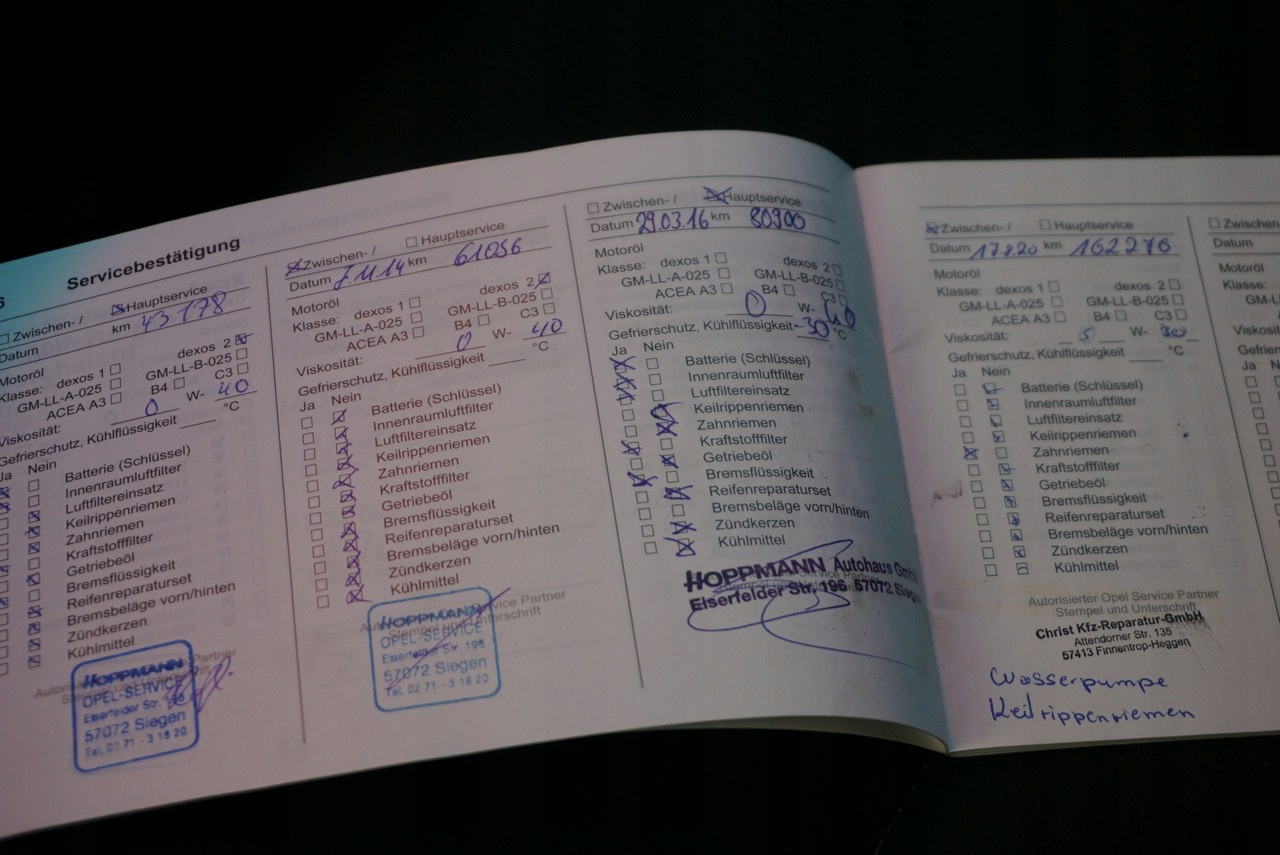 6 Servicebestätigung
Zwischen- / Hauptservice
Datum km 43178
Motoröl
Klasse: dexos 1 dexos 2
GM-LL-A-025 GM-LL-B-025
ACEA A3 B4 C3
Viskosität: 0 W- 40
Gefrierschutz, Kühlflüssigkeit °C
Ja Nein
Batterie (Schlüssel)
Innenraumluftfilter
Luftfiltereinsatz
Keilrippenriemen
Zahnriemen
Kraftstofffilter
Getriebeöl
Bremsflüssigkeit
Reifenreparaturset
Bremsbeläge vorn/hinten
Zündkerzen
Kühlmittel
HOPPMANN
OPEL-SERVICE
Eiserfelder Str. 196
57072 Siegen
Tel. 02 71 - 3 18 20
Zwischen- / Hauptservice
Datum 7.11.14 km 61056
Motoröl
Klasse: dexos 1 dexos 2
GM-LL-A-025 GM-LL-B-025
ACEA A3 B4 C3
Viskosität: 0 W- 40
Gefrierschutz, Kühlflüssigkeit °C
Ja Nein
Batterie (Schlüssel)
Innenraumluftfilter
Luftfiltereinsatz
Keilrippenriemen
Zahnriemen
Kraftstofffilter
Getriebeöl
Bremsflüssigkeit
Reifenreparaturset
Bremsbeläge vorn/hinten
Zündkerzen
Kühlmittel
Stempel und Unterschrift
HOPPMANN
OPEL-SERVICE
Eiserfelder Str. 196
57072 Siegen
Tel. 02 71 - 3 18 20
Zwischen- / Hauptservice
Datum 29.03.16 km 80900
Motoröl
Klasse: dexos 1 dexos 2
GM-LL-A-025 GM-LL-B-025
ACEA A3 B4 C3
Viskosität: 0 W- 40
Gefrierschutz, Kühlflüssigkeit -30 °C
Ja Nein
Batterie (Schlüssel)
Innenraumluftfilter
Luftfiltereinsatz
Keilrippenriemen
Zahnriemen
Kraftstofffilter
Getriebeöl
Bremsflüssigkeit
Reifenreparaturset
Bremsbeläge vorn/hinten
Zündkerzen
Kühlmittel
HOPPMANN Autohaus
Eiserfelder Str. 196 57072
Zwischen- / Hauptservice
Datum 17.8.20 km 162276
Motoröl
Klasse: dexos 1 dexos 2
GM-LL-A-025 GM-LL-B-025
ACEA A3 B4 C3
Viskosität: 5 W- 30
Gefrierschutz, Kühlflüssigkeit °C
Ja Nein
Batterie (Schlüssel)
Innenraumluftfilter
Luftfiltereinsatz
Keilrippenriemen
Zahnriemen
Kraftstofffilter
Getriebeöl
Bremsflüssigkeit
Reifenreparaturset
Bremsbeläge vorn/hinten
Zündkerzen
Kühlmittel
Autorisierter Opel Service Partner
Stempel und Unterschrift
Christ Kfz-Reparatur-GmbH
Attendorner Str. 135
57413 Finnentrop-Heggen
Wasserpumpe
Keilrippenriemen
Datum
Motoröl
Klasse:
Ja